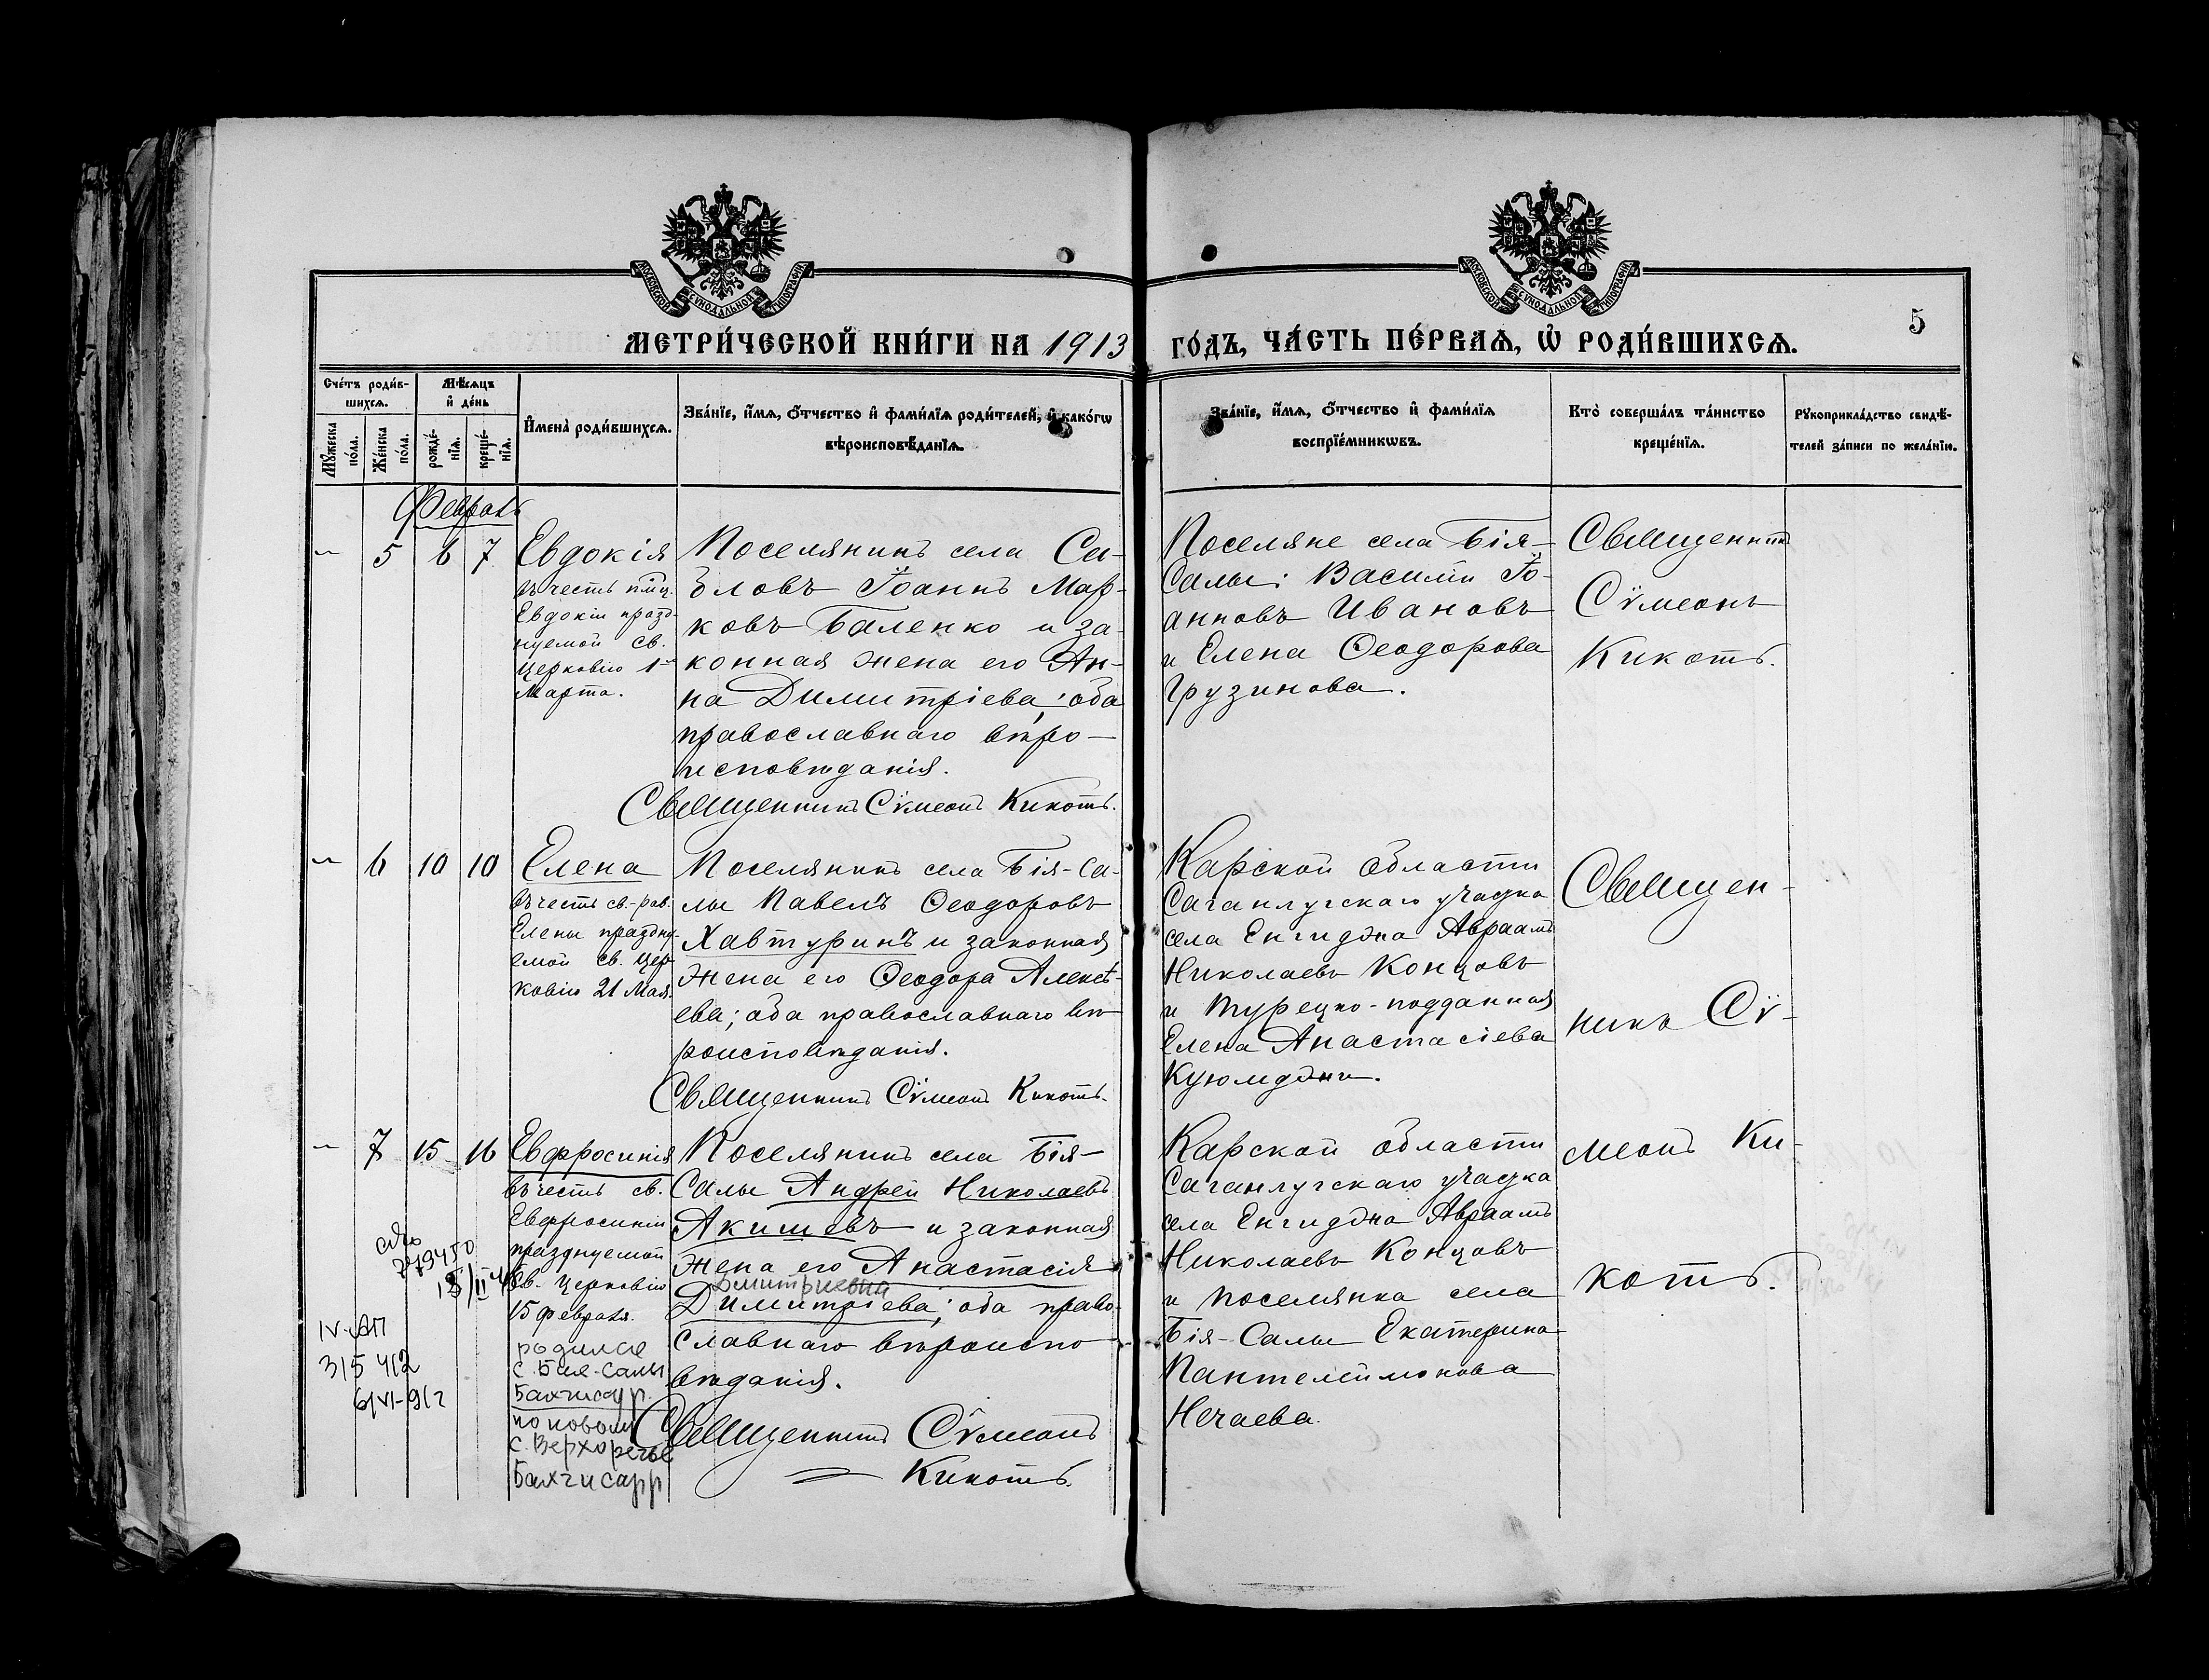 МОСКОВСКОЙ СѴНОДАЛЬНОЙ ТИПОГРАФІИ
МОСКОВСКОЙ СѴНОДАЛЬНОЙ ТИПОГРАФІИ
5
МЕТРИ́ЧЕСКОЙ КНИ́ГИ НА 1913 ГО́ДЪ, ЧА́СТЬ ПЕ́РВАѦ, Ѡ҆ РОДИ́ВШИХСѦ.
Сче́тъ роди́в-
шихсѧ.
Мѣ́сѧцъ
и҆ де́нь
Мꙋ́жеска
по́ла.
Же́нска
по́ла.
рожде́-
нїѧ.
креще́-
нїѧ.
И҆мена̀ роди́вшихсѧ.
Зва́нїе, и҆́мѧ, о҆́тчество и҆ фами́лїѧ роди́телей, и҆ како́гѡ
вѣроисповѣ́данїѧ.
Зва́нїе, и҆́мѧ, о҆́тчество и҆ фами́лїѧ
воспрїе́мникѡвъ.
Кто̀ соверша́лъ та́инство
креще́нїѧ.
Рꙋкоприкла́дство свидѣ́-
телей за́писи по жела́нїю.
Февраль
— 5 6 7
Евдокія
въ честь пмц.
Евдокіи празд-
нуемой св.
Церковію 1-
Марта.
Поселянинъ села Са-
бловъ Іоаннъ Мар-
ковъ Баленко и за-
конная жена его Ан-
на Димитріева; оба
православнаго вѣро-
исповѣданія.
Священникъ Сѵмеонъ Кикоть.
Поселяне села Бія-
Салы: Василій Іо-
анновъ Ивановъ
и Елена Ѳеодорова
Грузинова.
Священникъ
Сѵмеонъ
Кикоть.
— 6 10 10
Елена
въ честь св.-рав.
Елены праздну-
емой св. Цер-
ковію 21 Мая.
Поселянинъ села Бія-Са-
лы Павелъ Ѳеодоровъ
Хавтуринъ и законная
жена его Ѳеодора Алексѣ-
ева; оба православнаго вѣ-
роисповѣданія.
Священникъ Сѵмеонъ Кикоть.
Карской области
Саганлугскаго участка
села Енгиджа Авраамъ
Николаевъ Концовъ
и Турецко-подданная
Елена Анастасіева
Куюмджи.
Священ-
никъ Сѵ-
— 7 15 16
Евфросинія
въ честь св.
Евфросиніи
празднуемой
Св. Церковію
15 Февраля.
родилсе
с. Бия-Салы
Бахчисар.
по новому
с. Верхоречье
Бахчисар р
IV-АП
315412
6/VI-91г
Поселянинъ села Бія-
Салы Андрей Николаевъ
Акимовъ и законная
жена его Анастасія
Дмитриевна
Димитріева; оба право-
славнаго вѣроиспо-
вѣданія.
Священникъ Сѵмеонъ
Кикоть.
Карской области
Саганлугскаго участка
села Енгиджа Авраамъ
Николаевъ Концовъ
и поселянка села
Бія-Салы Екатерина
Пантелеимонова
Нечаева.
меонъ Ки-
коть.